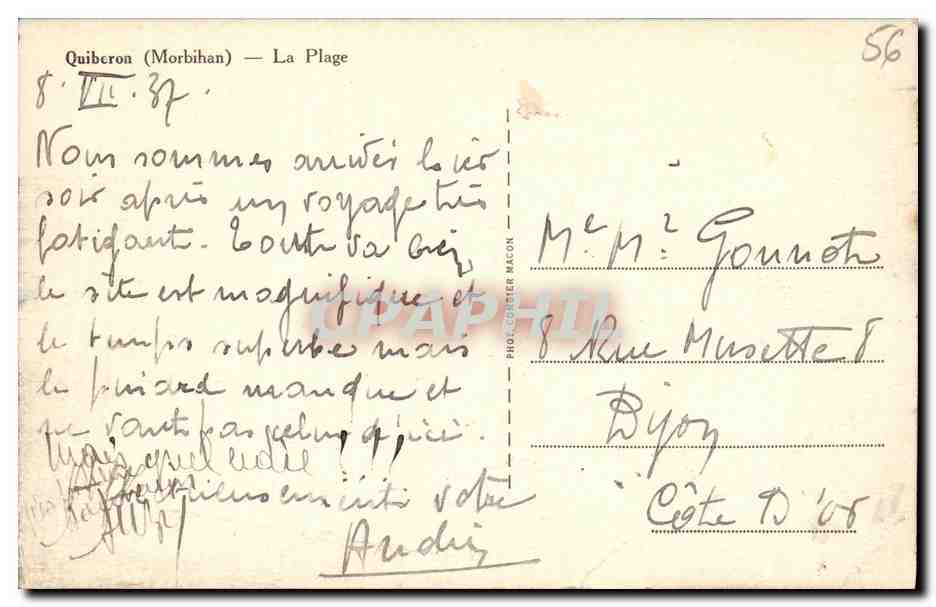 Quiberon (Morbihan) — La Plage
56
8. VII. 37.
Nous sommes arrivés hier
soir après un voyage très
fatigant. Tout va bien,
le site est magnifique et
le temps superbe mais
le pinard manque et
ne vaut pas celui d'ici.
Mais quel cidre !!!
votre
André
PHOT. COMBIER MACON
Me Mr Gonnot
8 Rue Musette 8
Dijon
Côte D'or
CPAPHIL